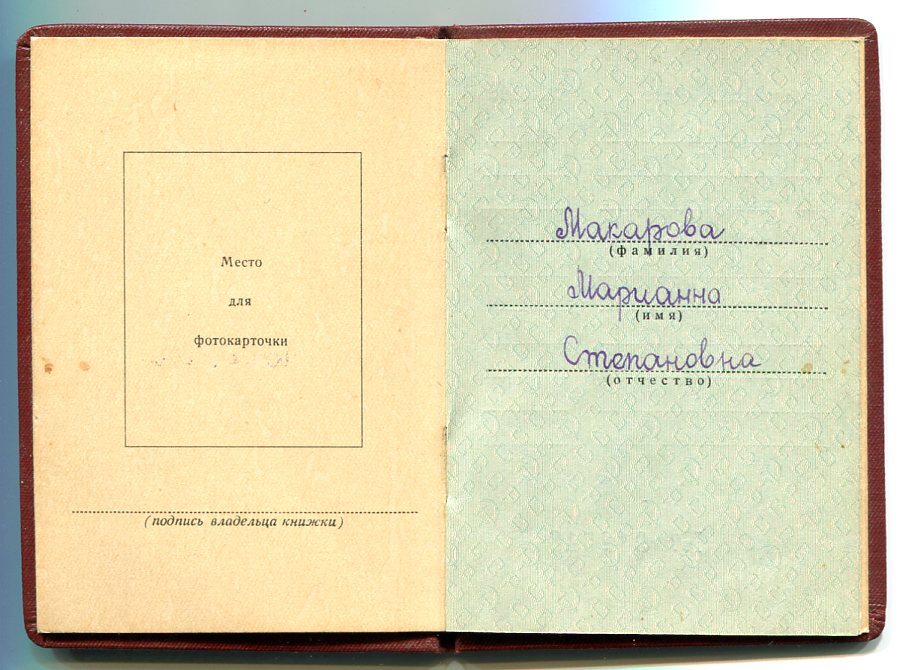 Место
для
фотокарточки
(подпись владельца книжки)
Макарова
(фамилия)
Марианна
(имя)
Степановна
(отчество)